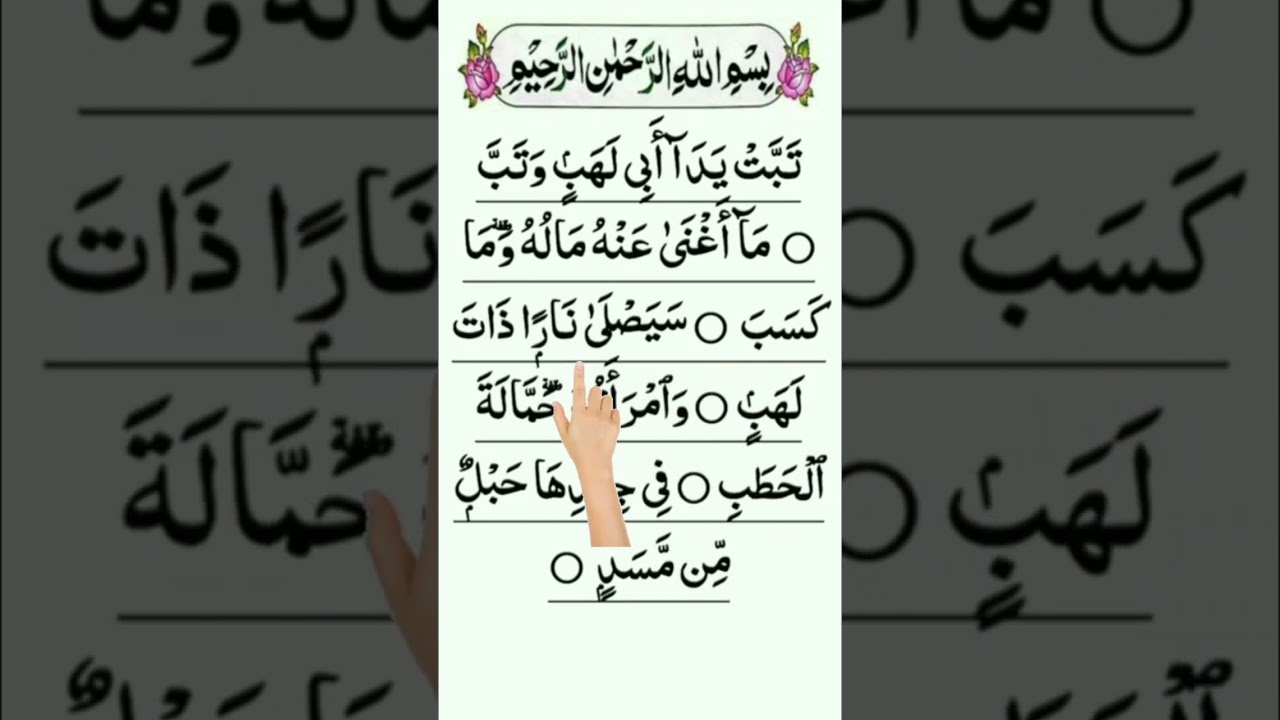 بِسْمِ اللهِ الرَّحْمٰنِ الرَّحِيْمِ
تَبَّتْ يَدَآ أَبِي لَهَبٍ وَتَبَّ
○ مَآ أَغْنَىٰ عَنْهُ مَالُهُ وَمَا
كَسَبَ ○ سَيَصْلَىٰ نَارًا ذَاتَ
لَهَبٍ ○ حَمَّالَةَ
ٱلْحَطَبِ ○ فِي حَبْلٌ
مِّن مَّسَدٍ ○